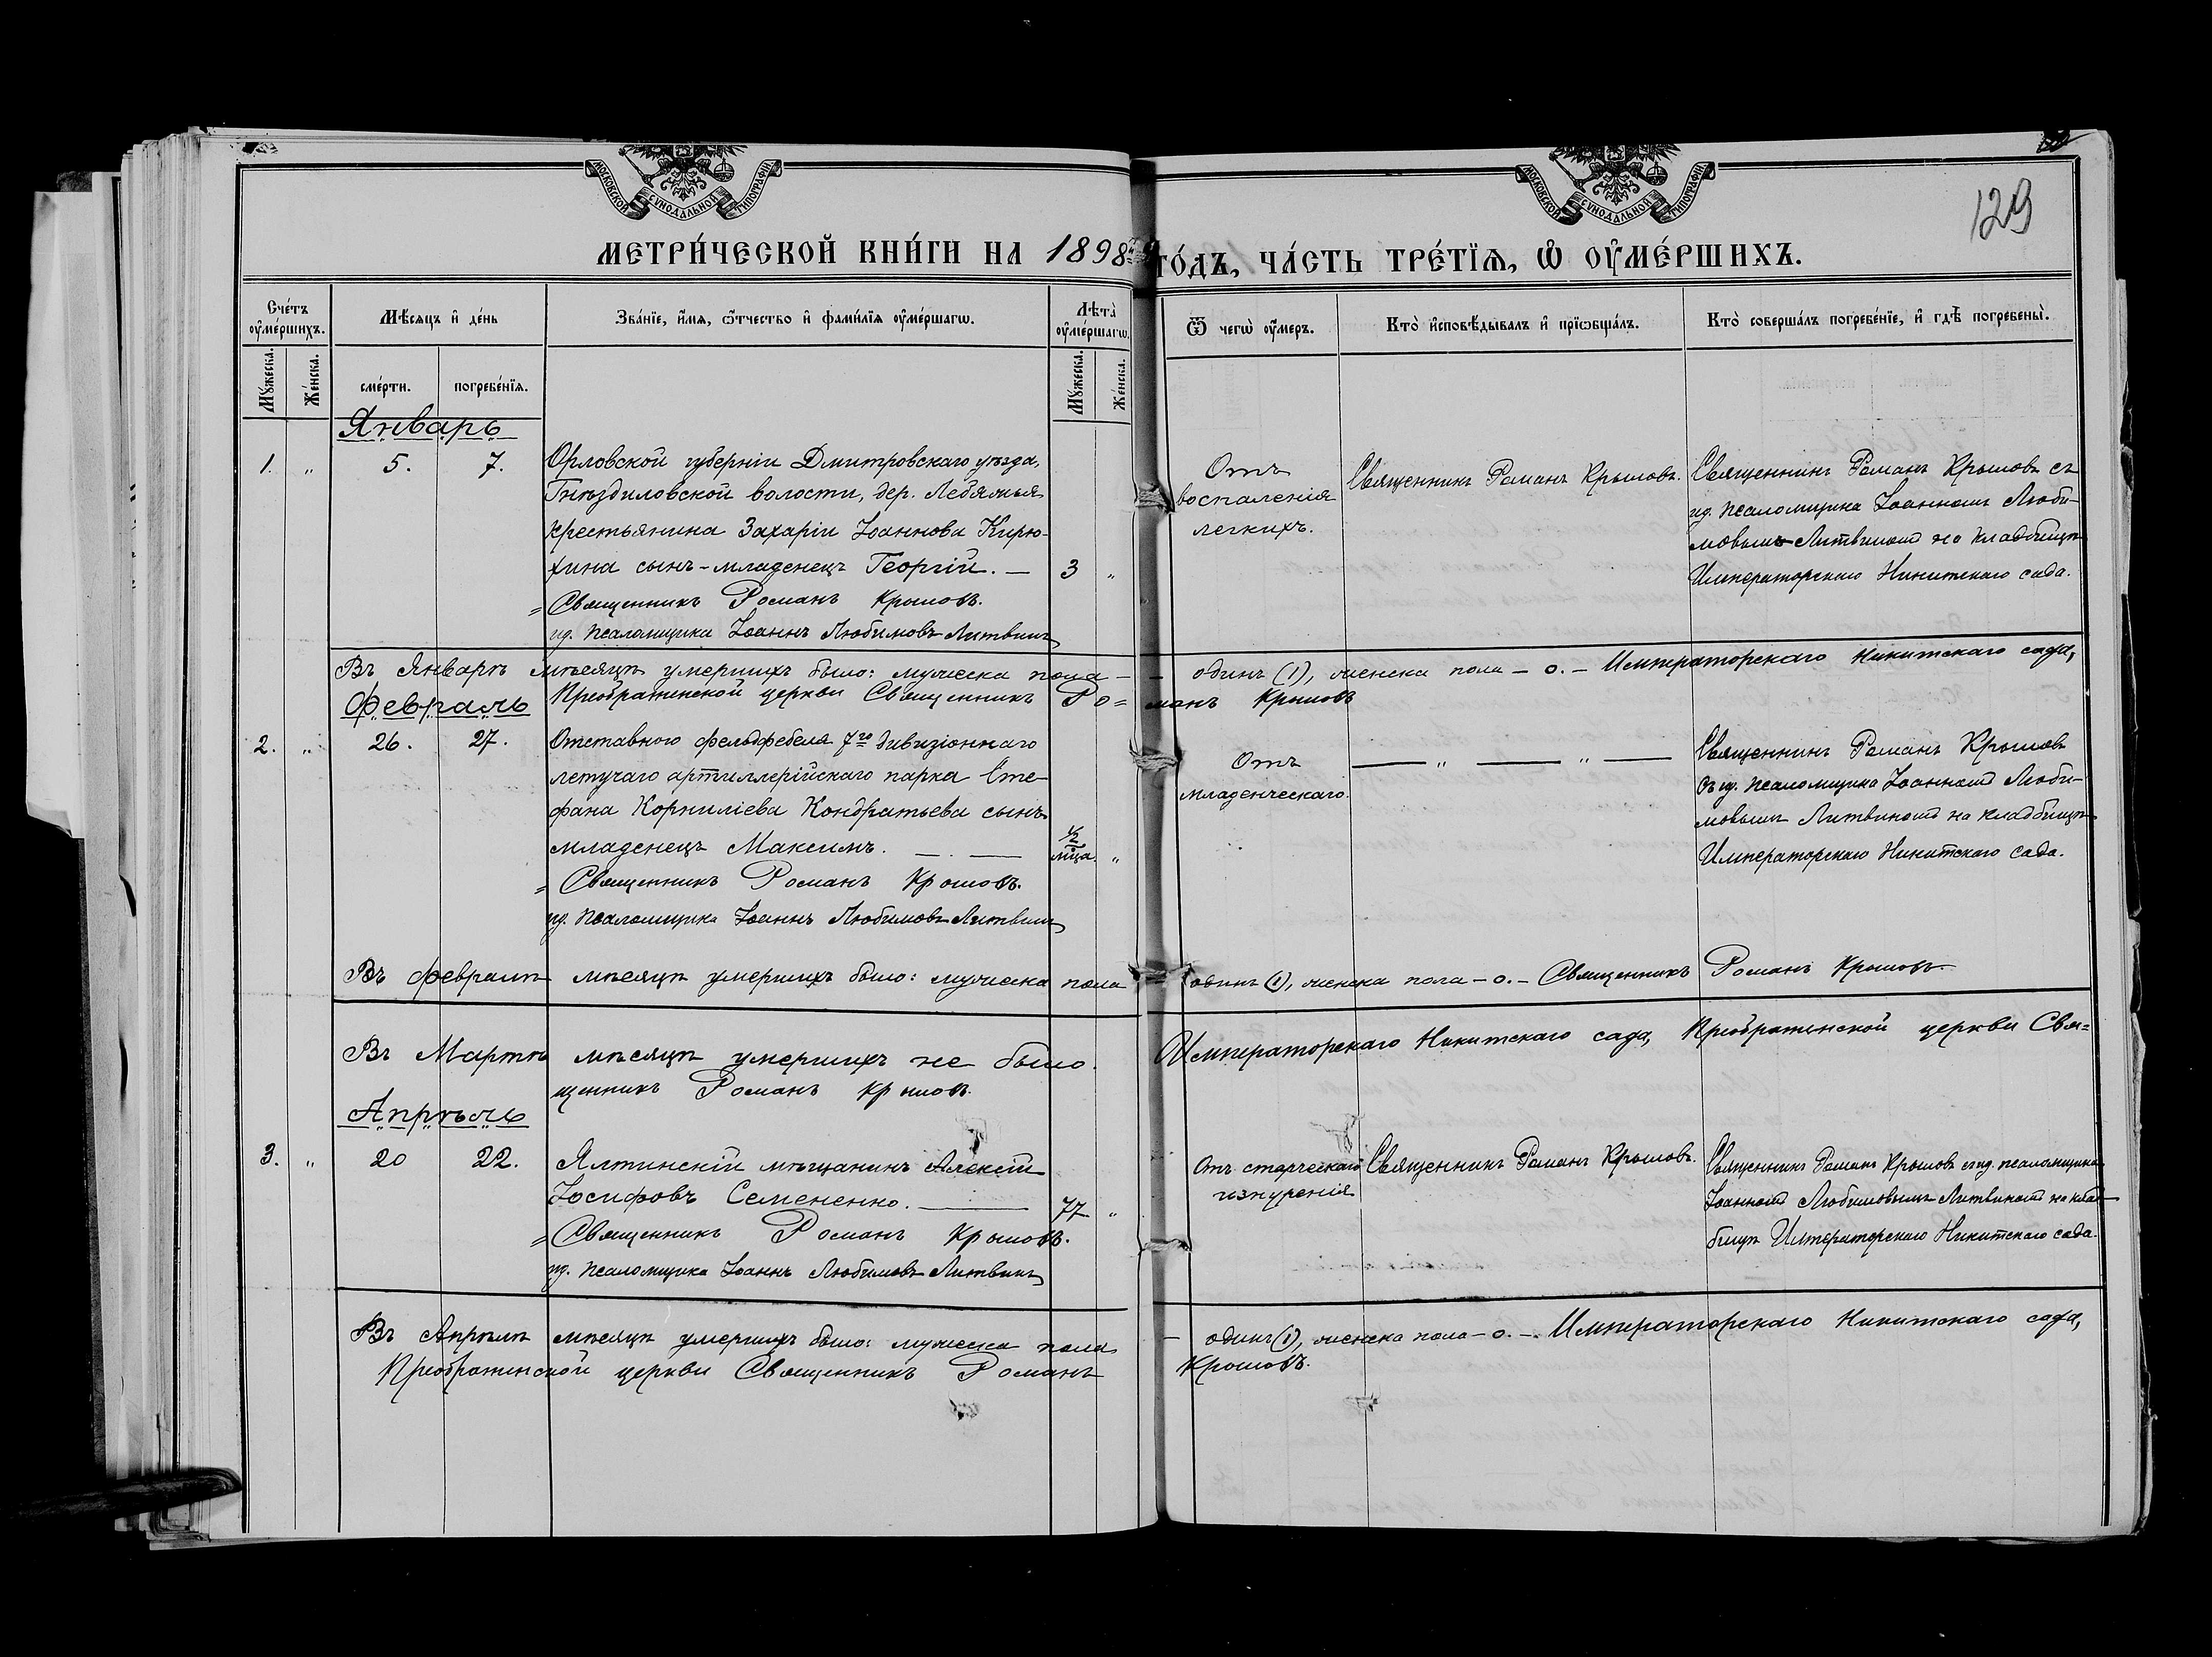 МОСКОВСКОЙ СѴНОДАЛЬНОЙ ТИПОГРАФІИ
МОСКОВСКОЙ СѴНОДАЛЬНОЙ ТИПОГРАФІИ
129
МЕТРИ́ЧЕСКОЙ КНИ́ГИ НА 1898й ГО́ДЪ, ЧА́СТЬ ТРЕ́ТЇѦ, Ѽ ОУ҆МЕ́РШИХЪ.
Сче́тъ оу҆ме́ршихъ.
Мꙋ́жеска.
Же́нска.
Мѣ́сяцъ и҆ де́нь
сме́рти.
погребе́нїя.
Зва́нїе, и҆́мя, ѻ҆́тчество и҆ фами́лїя оу҆ме́ршагѡ.
Лѣ̑та̀ оу҆ме́ршагѡ.
Мꙋ́жеска.
Же́нска.
Ѿ чегѡ̀ оу҆́меръ.
Кто̀ и҆сповѣ́дывалъ и҆ прїѡбща́лъ.
Кто̀ соверша́лъ погребе́нїе, и҆ гдѣ̀ погребены̀.
Январь
1. „ 5. 7.
Орловской губерніи Дмитровскаго уѣзда,
Гнѣздиловской волости, дер. Лебяжья
крестьянина Захаріи Іоаннова Кирю-
хина сынъ-младенецъ Георгій. — 3 „
= Священникъ Романъ Крыловъ.
ид. псаломщика Іоаннъ Любимовъ Литвинъ
Отъ
воспаленія
легкихъ.
Священникъ Романъ Крыловъ.
Священникъ Романъ Крыловъ съ
ид. псаломщика Іоанномъ Люби-
мовымъ Литвиномъ на кладбищѣ
Императорскаго Никитскаго сада.
Въ Январѣ мѣсяцѣ умершихъ было: мужеска пола — одинъ (1), женска пола – 0. – Императорскаго Никитскаго сада,
Преображенской церкви Священникъ Ро= манъ Крыловъ
Февраль
2. „ 26. 27.
Отставного фельдфебеля 7го дивизіоннаго
летучаго артиллерійскаго парка Сте-
фана Корниліева Кондратьева сынъ
младенецъ Максимъ. — — ½ мца. „
= Священникъ Романъ Крыловъ.
ид. псаломщика Іоаннъ Любимовъ Литвинъ
Отъ
младенческаго.
— „ — „ —
Священникъ Романъ Крыловъ
съ ид. псаломщика Іоанномъ Люби-
мовымъ Литвиномъ на кладбищѣ
Императорскаго Никитскаго сада.
Въ Февралѣ мѣсяцѣ умершихъ было: мужеска пола – одинъ (1), женска пола – 0. – Священникъ Романъ Крыловъ.
Въ Мартѣ мѣсяцѣ умершихъ не было. Императорскаго Никитскаго сада, Преображенской церкви Свя=
щенникъ Романъ Крыловъ.
Апрѣль
3. „ 20 22.
Ялтинскій мѣщанинъ Алексій
Іосифовъ Семененко. — 77 „
= Священникъ Романъ Крыловъ.
ид. псаломщика Іоаннъ Любимовъ Литвинъ
Отъ старческаго
изнуренія
Священникъ Романъ Крыловъ.
Священникъ Романъ Крыловъ съ ид. псаломщика
Іоанномъ Любимовымъ Литвиномъ на клад-
бищѣ Императорскаго Никитскаго сада.
Въ Апрѣлѣ мѣсяцѣ умершихъ было: мужеска пола – одинъ (1), женска пола – 0. – Императорскаго Никитскаго сада,
Преображенской церкви Священникъ Романъ Крыловъ.